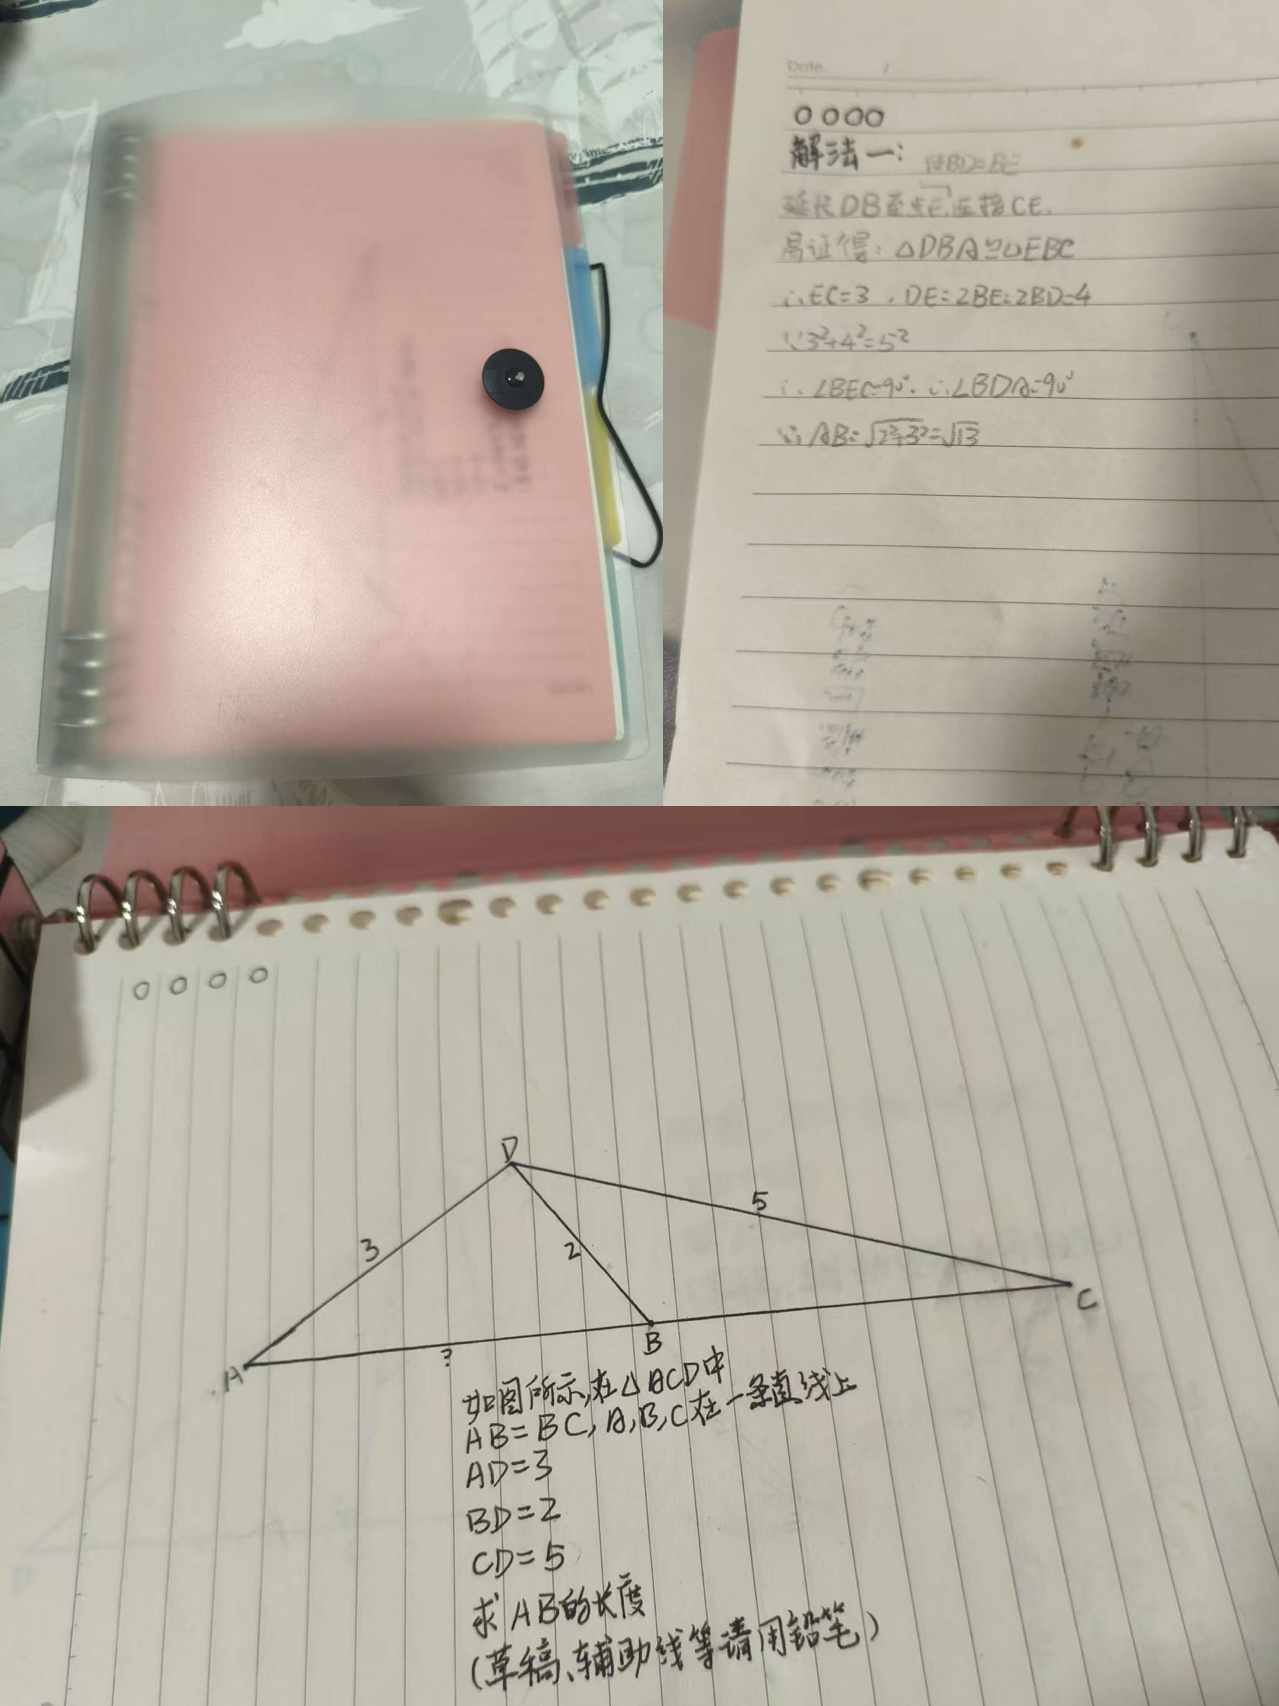 Date.
0000
解法一:
使BD=BE
延长DB至点E,连接CE.
易证得:△DBA≌△EBC
∴EC=3,DE=2BE=2BD=4
∵3²+4²=5²
∴∠BEC=90°.∴∠BDA=90°
∴AB=√2²+3²=√13
0000
D
3
2
5
A
?
B
C
如图所示,在△ACD中
AB=BC,A,B,C在一条直线上
AD=3
BD=2
CD=5
求AB的长度
(草稿、辅助线等请用铅笔)